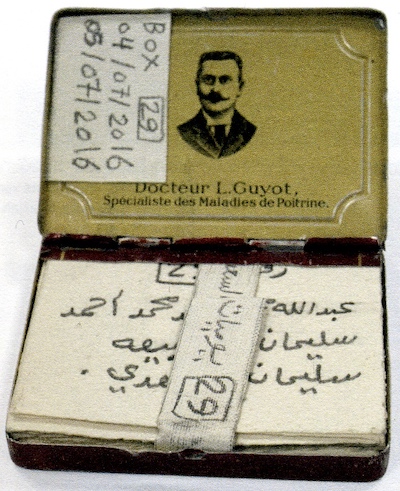 BOX 29
04/07/2016
05/07/2016
Docteur L.Guyot,
Spécialiste des Maladies de Poitrine.
عبدالله محمد أحمد
سليمان
سليمان
يوميات
29